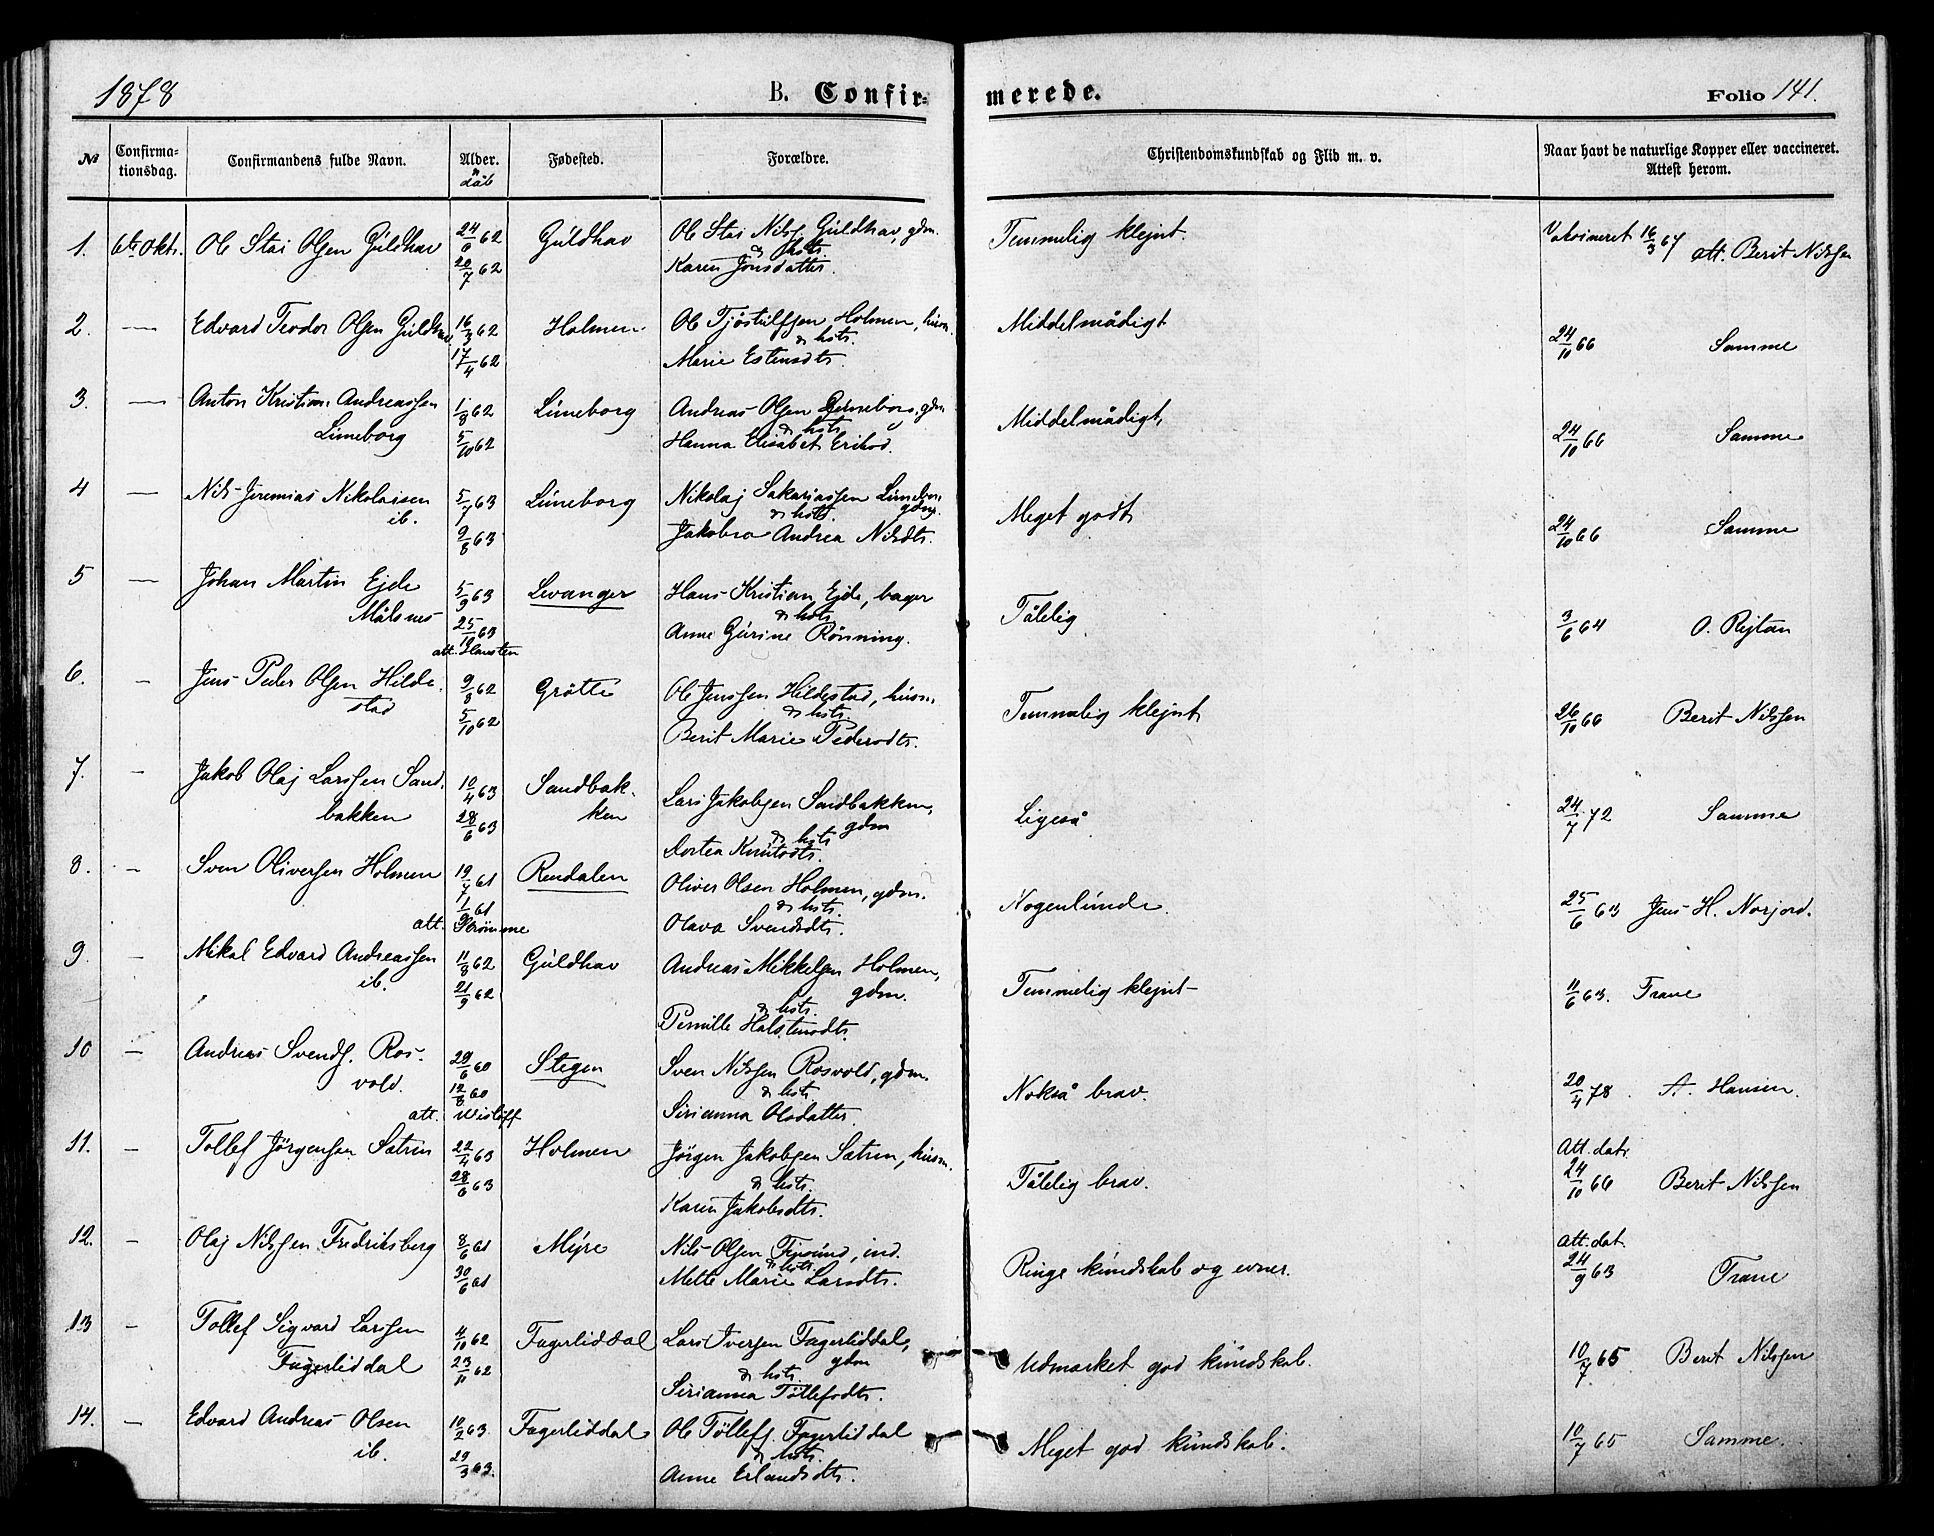 1878
B. Confirmerede.
Folio 141.
№
Confirmationsdag.
Confirmandens fulde Navn.
Alder. & dåb
Fødested.
Forældre.
Christendomskundskab og Flid m. v.
Naar havt de naturlige Kopper eller vaccineret. Attest herom.
1. 6te Okt. Ole Stai Olsen Güldhav 24/6 62 Güldhav Ole Stai Nilss. Güldhav, gdm. Temmelig klejnt. Vaksineret 16/3 67 att. Berit Nilssen
20/7 62 & hstr. Karen Jonsdatter.
2. — Edvard Teodor Olsen Güldhav 16/3 62 Holmen Ole Tjøstulfsen Holmen, husm. Middelmådigt 24/10 66 Samme
17/4 62 & hstr. Marie Estensdtr.
3. — Anton Kristian Andreassen 1/8 62 Lüneborg Andreas Olsen Lüneborg, gdm. Middelmådigt, 24/10 66 Samme
Lüneborg 5/10 62 & hstr. Hanna Elisabet Eriksd.
4 — Nils Jeremias Nikolaisen 5/7 63 Lüneborg Nikolaj Sakariassen Lüneborg gdm. Meget godt 24/10 66 Samme
ib. 9/8 63 & hstr. Jakobra Andrea Nilsdtr.
5 — Johan Martin Ejde 5/9 63 Levanger Hans Kristian Ejde, bager Tålelig 3/6 64 O. Rejtan
Målsnes 25/12 63 & hstr. Anne Gurine Rönning.
att. Hansten
6. — Jens Peder Olsen Hilde- 9/8 62 Gråtte Ole Jenssen Hildestad, husm. Temmelig klejnt 26/10 66 Berit Nilssen
stad 5/10 62 & hstr. Berit Marie Pedersdtr.
7. — Jakob Olaj Larssen Sand- 10/4 63 Sandbak- Lars Jakobsen Sandbakken, Ligeså 24/7 72 Samme
bakken 28/6 63 ken gdm & hstr. Dortea Knutsdtr.
8. — Sven Oliversen Holmen 19/7 61 Rendalen Oliver Olsen Holmen, gdm. Nogenlunde. 25/6 63 Jens H. Norjord.
& hstr. Olava Svendsdtr.
att. Strömme
9. — Mikal Edvard Andreassen 11/8 62 Güldhav Andreas Mikkelsen Holmen, Temmelig klejnt 11/6 63. Trane
ib. 21/9 62 gdm. & hstr. Pernille Halstensdtr.
10 — Andreas Svends. Ros- 29/6 60 Stegen Sven Nilssen Rosvold, gdm. Nokså brav. 20/4 78. A. Hansen.
vold. 12/8 60 & hstr. Sirianna Olsdatter.
att. Wisløff
11. — Tollef Jörgensen Sætrin 22/4 63 Holmen Jörgen Jakobsen Sætrin, husm. Tålelig brav. Att. dat. 24/10 66 Berit Nilssen
28/6 63 & hstr. Karen Jakobsdtr.
12. — Olaj Nilssen Fredriksberg 8/6 61 Myre Nils Olsen, ind. Ringe kundskab og evner. Att. dat. 24/9 63 Trane
30/6 61 & hstr. Mette Marie Larsdtr.
13 — Tollef Sigvard Larssen 4/10 62 Fagerliddal Lars Iversen Fagerliddal, Udmærket god kundskab. 10/7 65 Berit Nilssen
Fagerliddal 23/11 62 gdm & hstr. Sirianna Tollefsdtr.
14. — Edvard Andreas Olsen 10/2 63. Fagerliddal Ole Tollefs. Fagerliddal Meget god kundskab. 10/7 65 Samme.
ib. 29/3 63. & hstr. Anne Erlandsdtr.